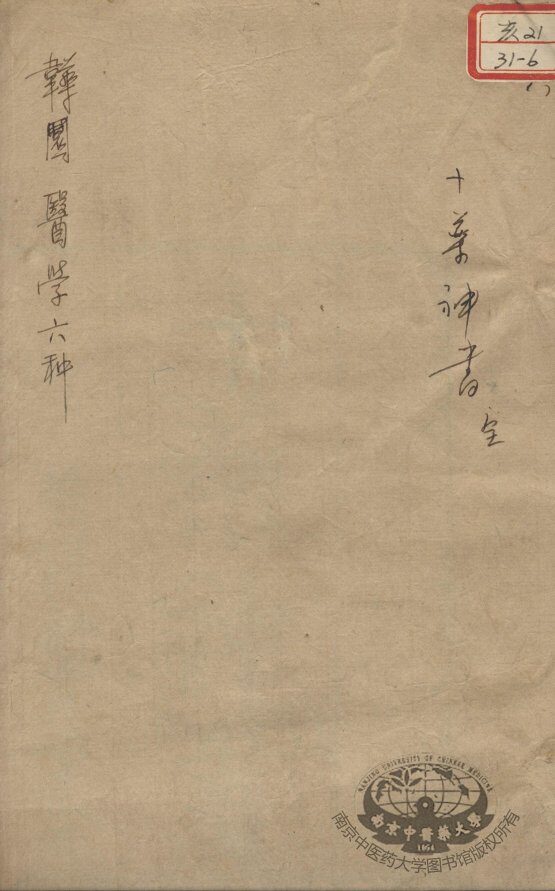 亥21
31-6
十薬神書 全
韡園醫学六种
NANJING UNIVERSITY OF CHINESE MEDICINE
南京中醫藥大學
1954
南京中医药大学图书馆版权所有